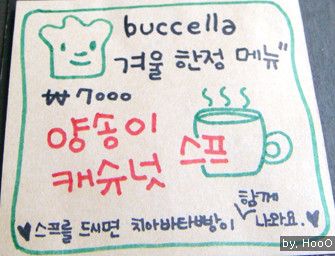 buccella
겨울 한정 메뉴"
₩ 7000
양송이
캐슈넛 스프
♥ 스프를 드시면 치아바타빵이 함께 나와요. ♥
by. HooO